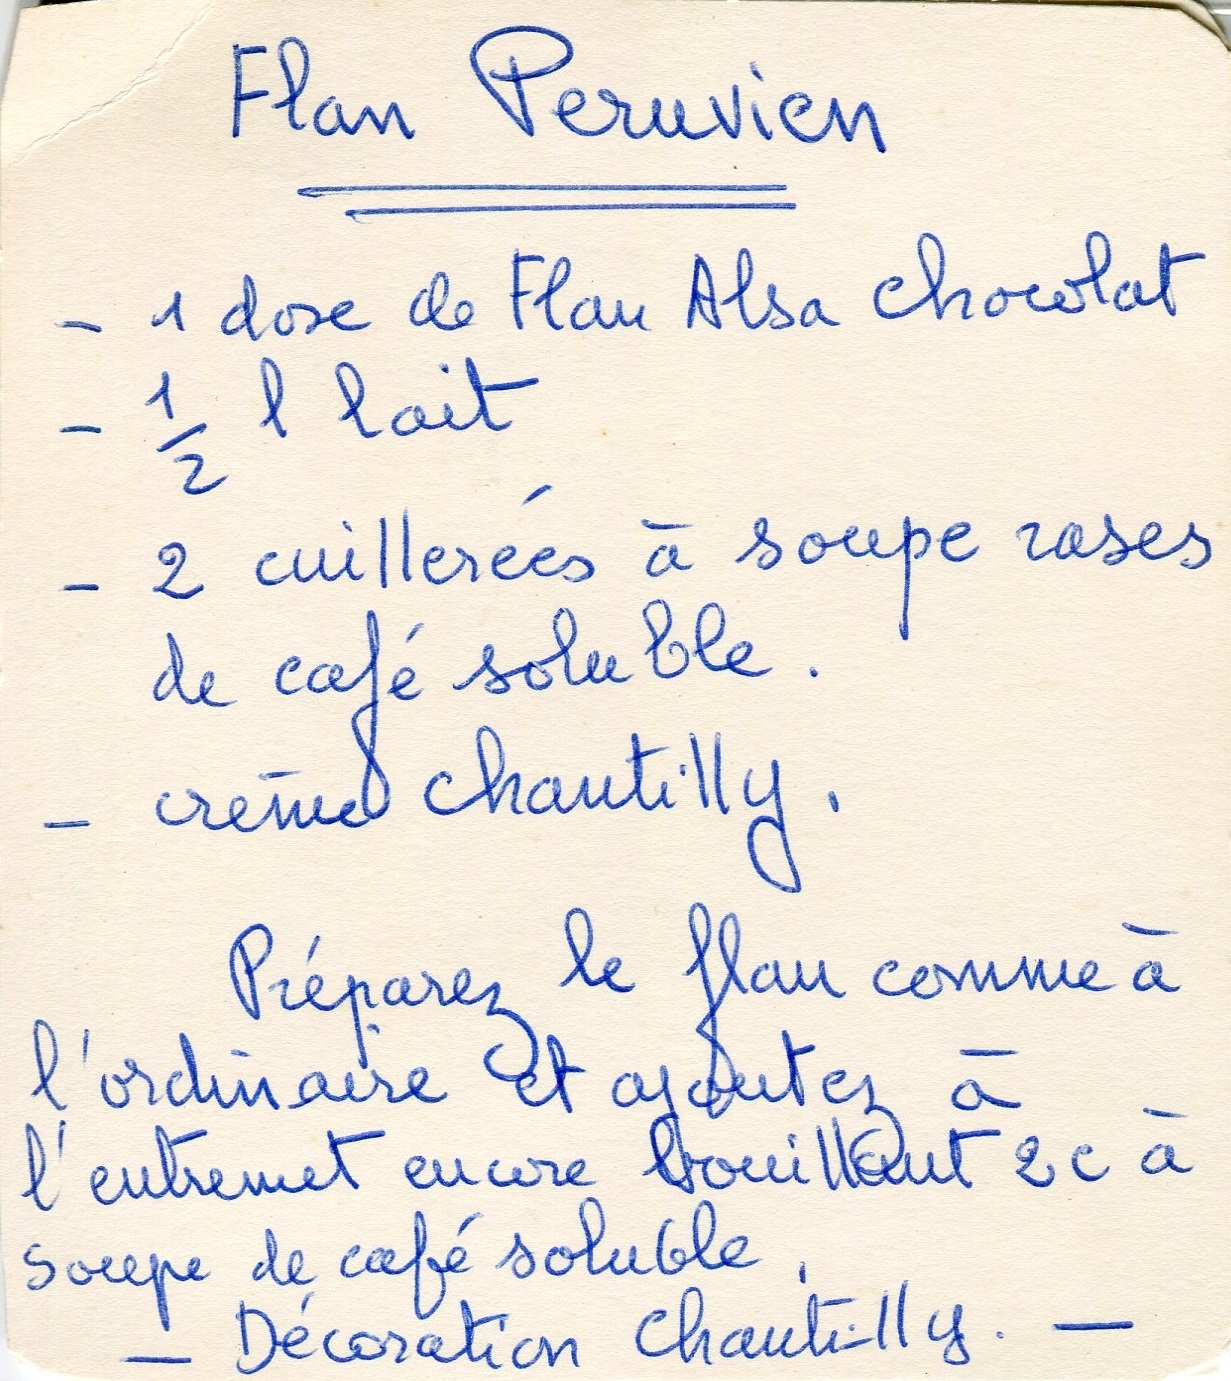 Flan Peruvien
- 1 dose de Flan Alsa chocolat
- 1/2 l lait
- 2 cuillerées à soupe rases
de café soluble.
- crème chantilly.
Préparez le flan comme à
l'ordinaire et ajoutez à
l'entremet encore bouillant 2 c à
soupe de café soluble.
- Décoration chantilly. -